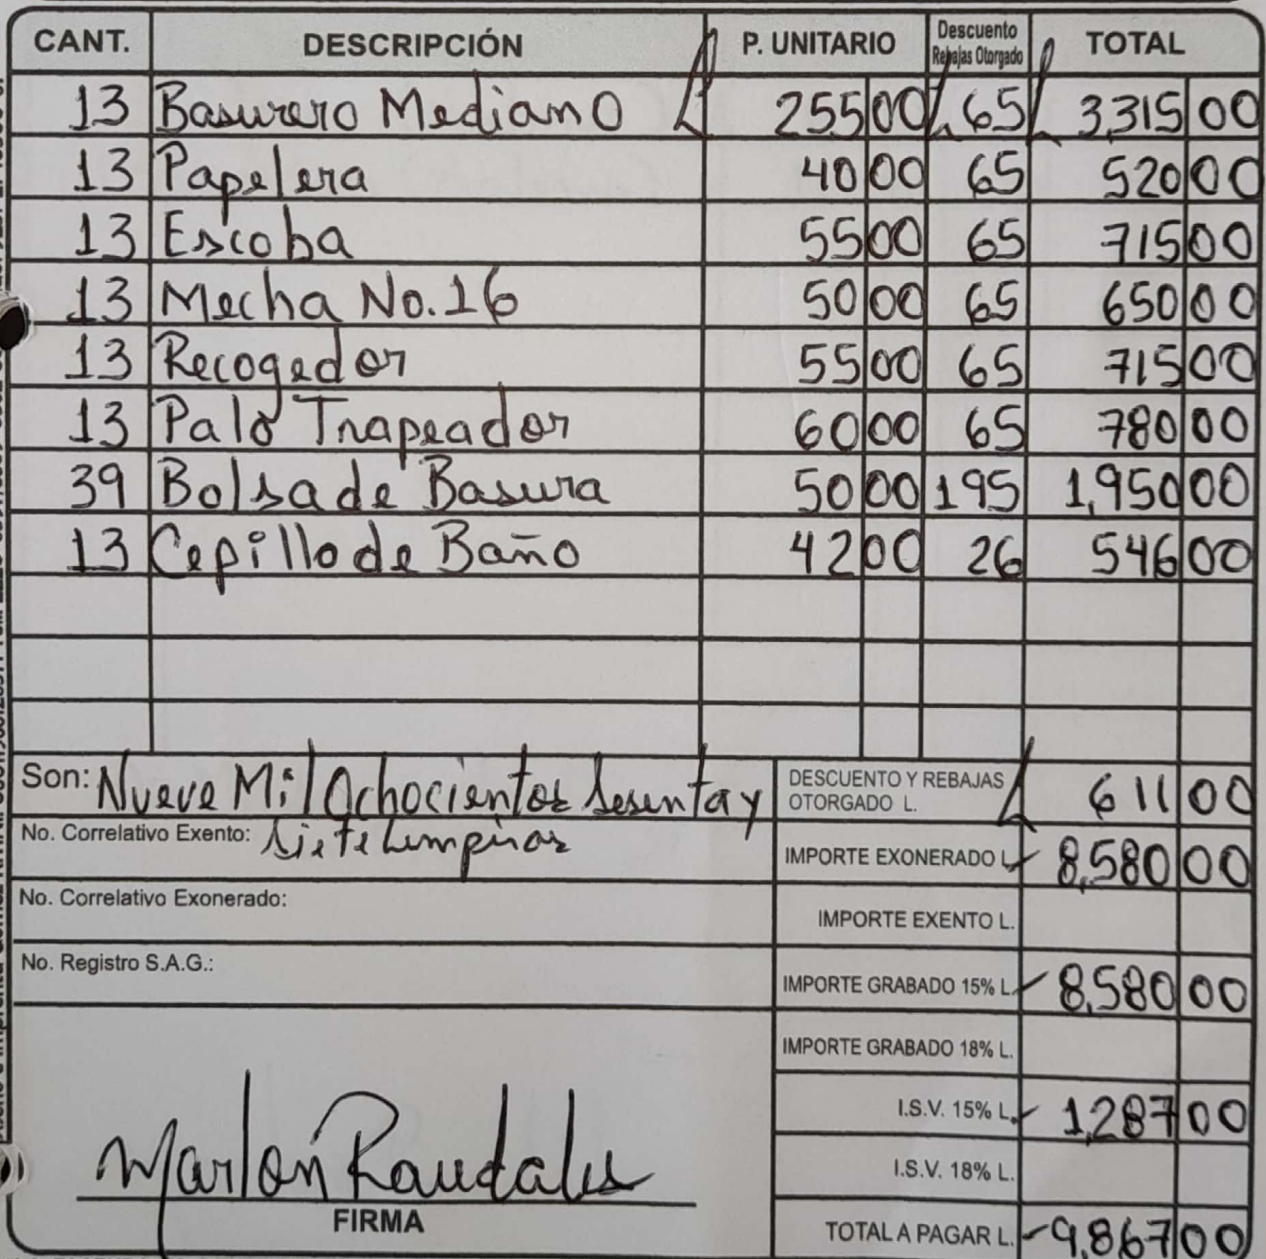 CANT. DESCRIPCIÓN P. UNITARIO Descuento Rebajas Otorgado TOTAL
13 Basurero Mediano L 255 00 L 65 L 3,315 00
13 Papelera 40 00 65 520 00
13 Escoba 55 00 65 715 00
13 Mecha No.16 50 00 65 650 00
13 Recogedor 55 00 65 715 00
13 Palo Trapeador 60 00 65 780 00
39 Bolsa de Basura 50 00 195 1,950 00
13 Cepillo de Baño 42 00 26 546 00
Son: Nueve Mil Ochocientos Sesenta y
Siete Lempiras
No. Correlativo Exento:
No. Correlativo Exonerado:
No. Registro S.A.G.:
DESCUENTO Y REBAJAS OTORGADO L. L 611 00
IMPORTE EXONERADO L. 8,580 00
IMPORTE EXENTO L.
IMPORTE GRABADO 15% L. 8,580 00
IMPORTE GRABADO 18% L.
I.S.V. 15% L. 1,287 00
I.S.V. 18% L.
TOTAL A PAGAR L. 9,867 00
Marlon Raudales
FIRMA